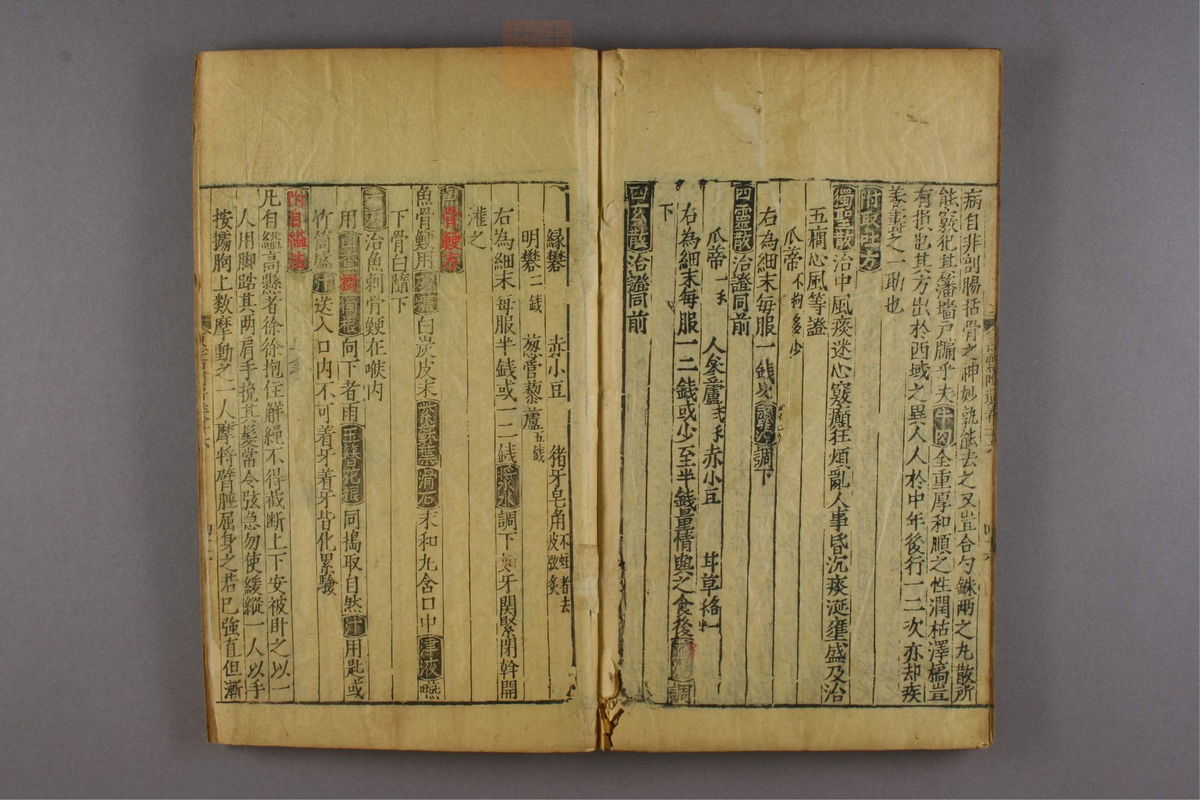 病自非剖腸括骨之神妙孰能去之又豈合勺銖兩之丸散所
能竅犯其藩墻戸牖乎夫牛肉全重厚和順之性潤枯澤槁豈
有損也其方出於西域之異人人於中年後行一二次亦却疾
養壽之一助也
附取吐方
獨聖散治中風痰迷心竅癲狂煩亂人事昏沉痰涎壅盛及治
五癎心風等證
瓜蒂不拘多少
右為細末每服一錢 調下
四靈散治證同前
瓜蒂一 人參蘆 赤小豆 甘草
右為細末每服一二錢或少至半錢量情與之食後 調
下
四玄散治證同前
緑礬 赤小豆 猪牙皂角不蛀者去皮弦炙
明礬二錢 葱管藜蘆五錢
右為細末每服半錢或一二錢漿水調下如牙関緊閉斡開
灌之
骨鯁方
魚骨鯁用 白炭皮末紫蘇葉滑石末和丸含口中津液嚥
下骨自隨下
治魚刺骨鯁在喉内
用 樹獨根向下者用玉簪花根同搗取自然汁用匙或
竹筒盛汁送入口内不可着牙着牙皆化累驗
附自縊法
凡自縊高懸者徐徐抱住觧繩不得截斷上下安被卧之以一
人用脚踏其兩肩手挽其髮常令弦急勿使緩縱一人以手
按據胸上数摩動之一人摩將臂脛屈身之若已強直但漸